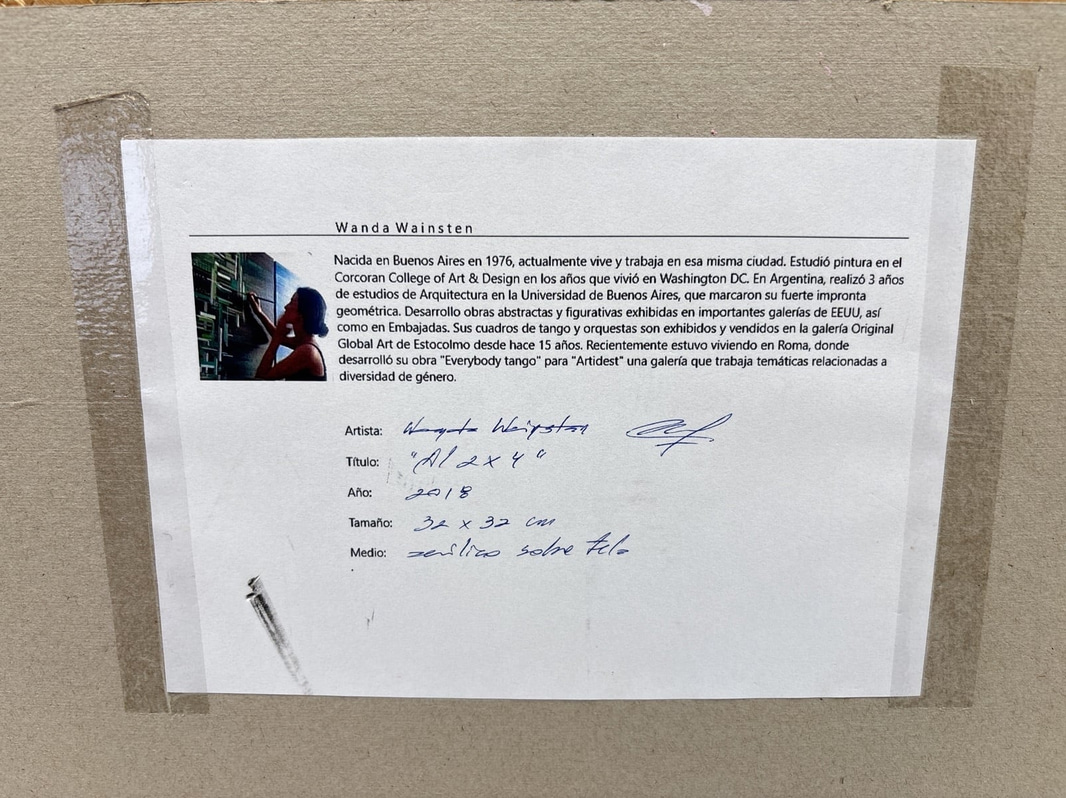 Wanda Wainsten
Nacida en Buenos Aires en 1976, actualmente vive y trabaja en esa misma ciudad. Estudió pintura en el
Corcoran College of Art & Design en los años que vivió en Washington DC. En Argentina, realizó 3 años
de estudios de Arquitectura en la Universidad de Buenos Aires, que marcaron su fuerte impronta
geométrica. Desarrollo obras abstractas y figurativas exhibidas en importantes galerías de EEUU, así
como en Embajadas. Sus cuadros de tango y orquestas son exhibidos y vendidos en la galería Original
Global Art de Estocolmo desde hace 15 años. Recientemente estuvo viviendo en Roma, donde
desarrolló su obra "Everybody tango" para "Artidest" una galería que trabaja temáticas relacionadas a
diversidad de género.
Artista: Wanda Wainsten
Título: "Al 2x4"
Año: 2018
Tamaño: 32 x 32 cm
Medio: acrílico sobre tela